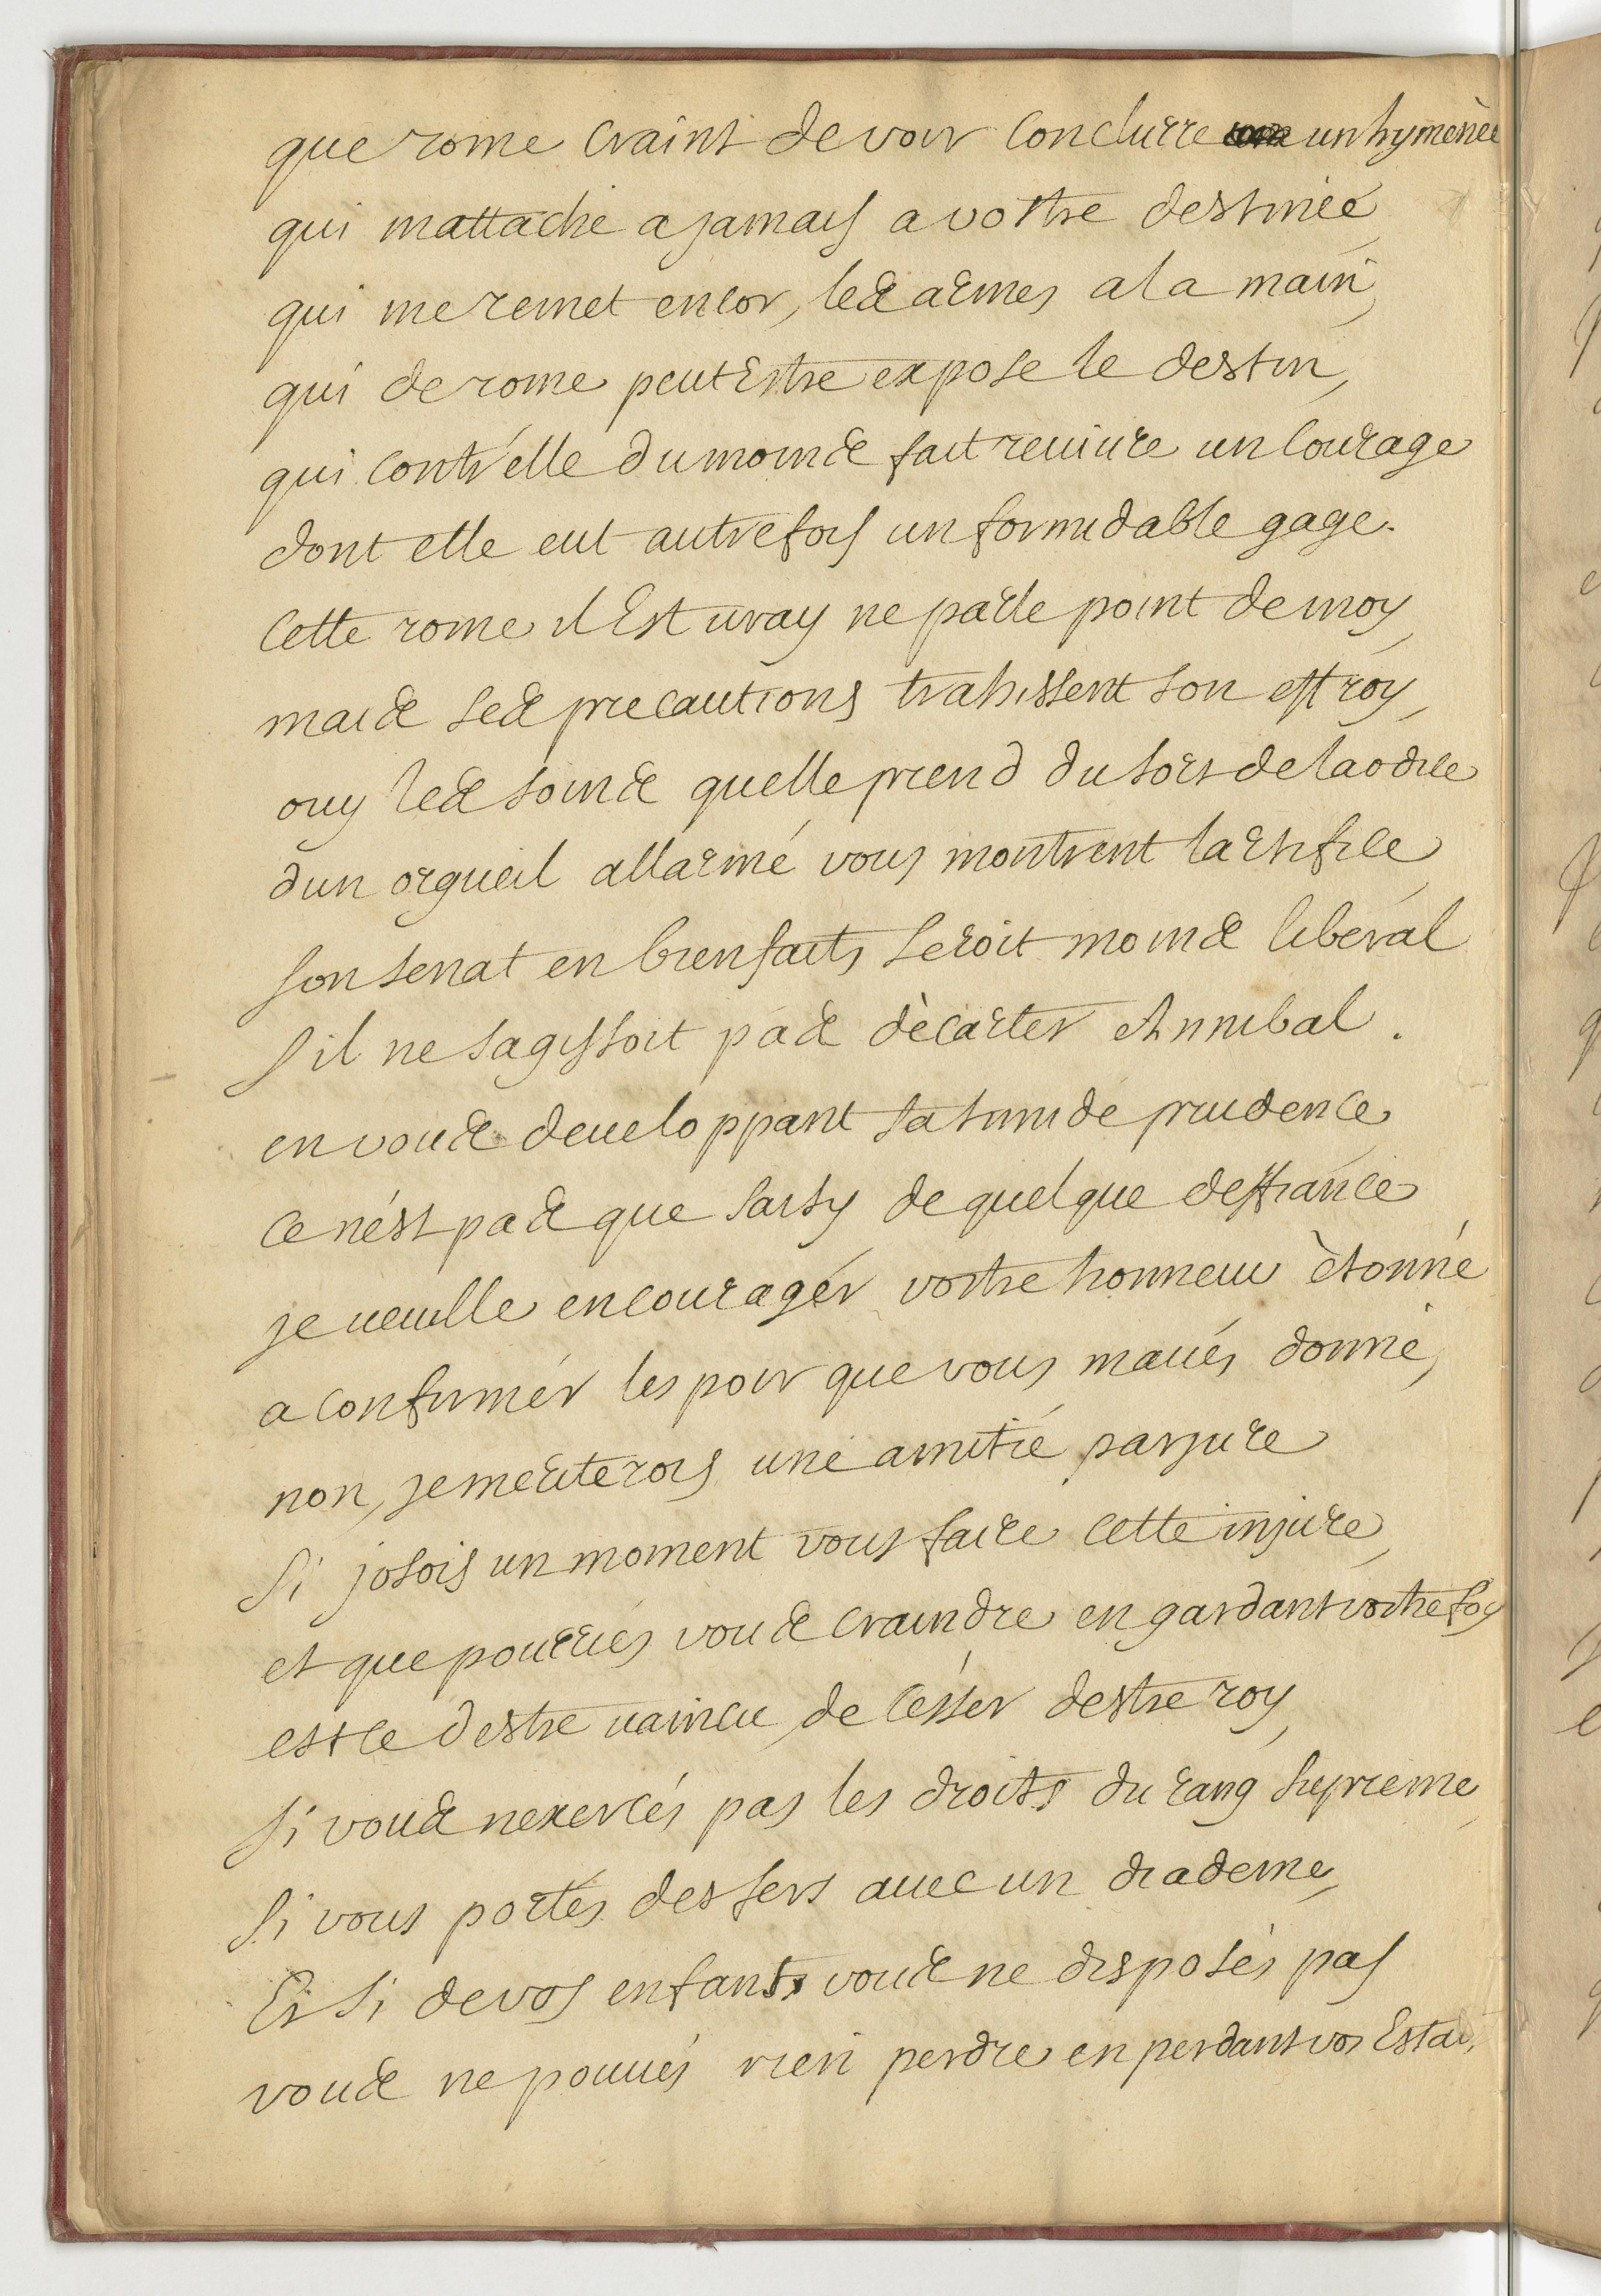 que rome craint de voir conclurre un hymenèe
qui mattache a jamais a vostre destinée
qui me remet encor, les armes a la main,
qui de rome peut Estre expose le destin,
qui contr'elle du moins fait reuiure un courage
dont elle eut autrefois un formidable gage.
cette rome il Est uray ne parle point de moy,
mais ses precautions trahissent son effroy,
ouy les soins quelle prend du sort de laodice
dun orgueil allarmé vous montrent lartifice,
son senat en bienfaits seroit moins liberal
sil ne sagissoit pas dècarter Annibal.
en vous deueloppant sa timide prudence
ce nést pas que saisy de quelque deffiance
je ueuille encouragér vostre honneur ètonné
a confirmér lespoir que vous maués donné,
non, je meriterois une amitié parjure
si josois un moment vous faire cette injure,
et que pourriés vous craindre en gardant vostre foy
est ce destre uaincu, de césser destre roy,
si vous nexercés pas les droits du rang supreme,
si vous portés des fers auec un diademe,
Et si de vos enfants vous ne disposés pas
vous ne pouués rien perdre en perdant vos Estats,